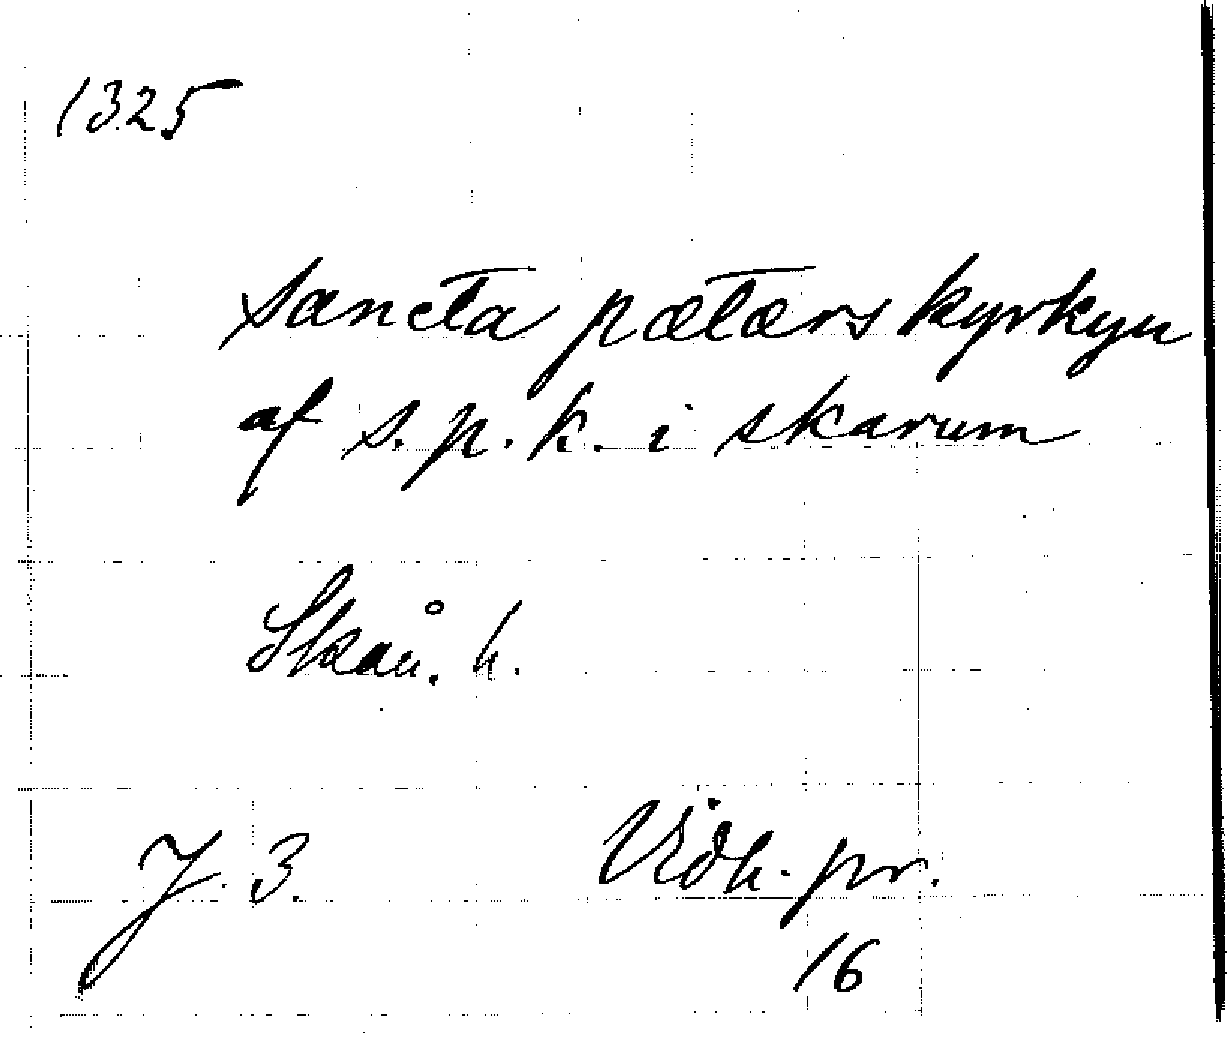 1325
sancta pætærs kyrkyu
af s. p. k. i skarum
Skån. h.
J. 3. Vidh. pr.
16